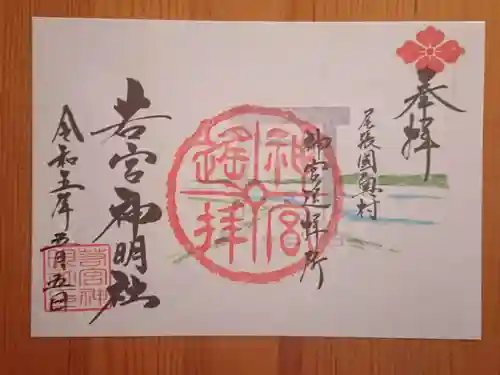 奉拝
尾張國魚村
神宮遥拝所
神宮
遥拝
若宮神明社
令和五年 五月五日
若宮神